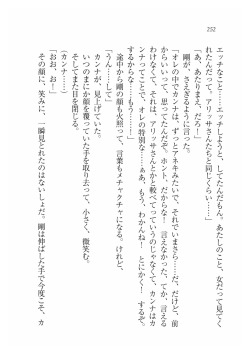 252
エッチなこと……エッチしようと、してたんだもん。あたしのこと、女だって見てく
れたんだって。アリッサさんたちと同じくらい……」
「あ、あたりまえ、だろ！」
剛が、さえぎるように言った。
「オレの中でカンナは、ずっとアネキみたいで、それでいまさら……だ、だけど、前
からいいって、思ってたんだぞ。ホント、だからな！　言えなかった、てか、言える
わけなくて、それは、アリッサさんとか、と較べてっていうのじゃなくて、カンナはカ
ンナってことで、オレの特別な……ぁぁ、もう、わかんね！　とにかく、オレ、
するからな……もう、するっ」
途中から剛の顔も火照って、言葉もメチャクチャになる。けれど、
「うん……して」
カンナが、見上げていた。
いつのまにか顔を覆っていた手を取り去って、小さく、微笑む。
そしてまた目を閉じる。
（カンナ……）
「おお、お！」
その顔に、笑みに、一瞬見とれたのはないしょだ。剛は伸ばした手で今度こそ、カ